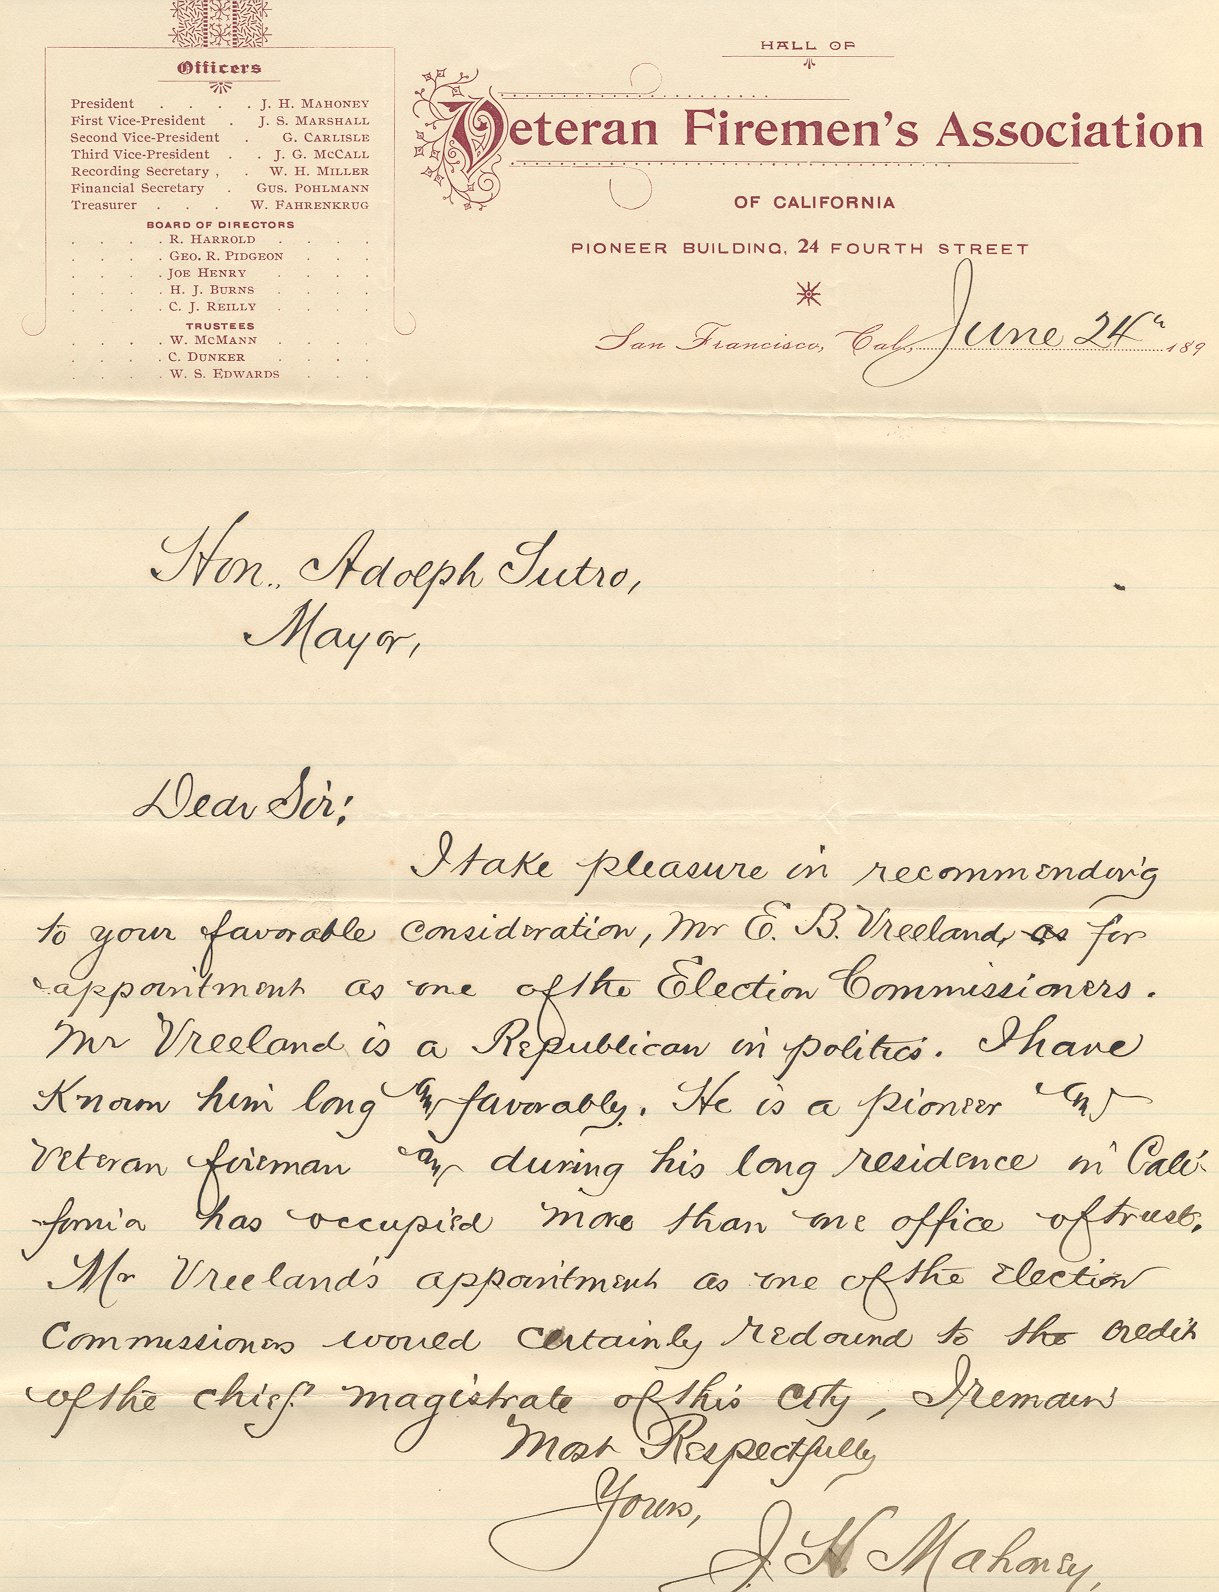 Officers
President . . . . J. H. MAHONEY
First Vice-President . J. S. MARSHALL
Second Vice-President . G. CARLISLE
Third Vice-President . . J. G. McCALL
Recording Secretary , . W. H. MILLER
Financial Secretary . GUS. POHLMANN
Treasurer . . . W. FAHRENKRUG
BOARD OF DIRECTORS
. . . . R. HARROLD . . . .
. . . . GEO. R. PIDGEON . . .
. . . . JOE HENRY . . . .
. . . . H. J. BURNS . . . .
. . . . C. J. REILLY . . . .
TRUSTEES
. . . . W. McMANN . . . .
. . . . C. DUNKER . . . .
. . . . W. S. EDWARDS . . .
HALL OF
Veteran Firemen's Association
OF CALIFORNIA
PIONEER BUILDING, 24 FOURTH STREET
San Francisco, Cal., June 24th 189
Hon., Adolph Sutro,
Mayor,
Dear Sir:
I take pleasure in recommending
to your favorable consideration, Mr E. B. Vreeland, as for
appointment as one of the Election Commissioners.
Mr Vreeland is a Republican in politics. I have
Known him long and favorably. He is a pioneer and
Veteran fireman and during his long residence in Cali-
fornia has occupied more than one office of trust.
Mr Vreeland's appointment as one of the Election
Commissioners would certainly redound to the credit
of the chief magistrate of this City, I remain
Most Respectfully
Yours,
J. H. Mahoney,